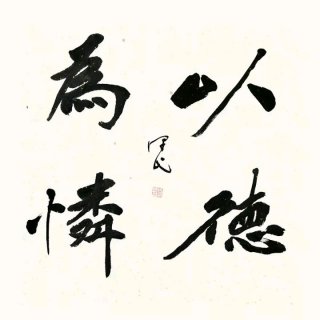 以德
為憐